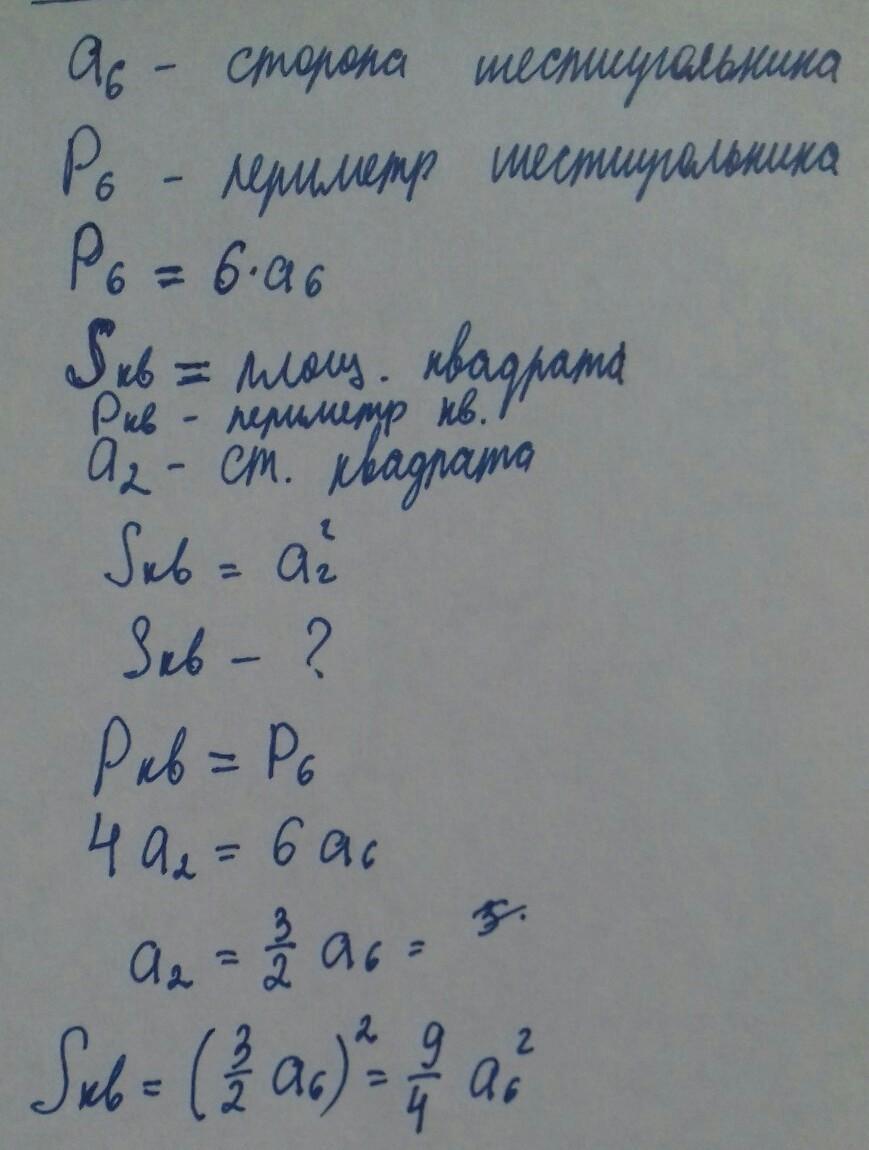 a₆ - сторона шестиугольника
P₆ - периметр шестиугольника
P₆ = 6·a₆
Sкв = площ. квадрата
Pкв - периметр кв.
a₂ - ст. квадрата
Sкв = a₂²
Sкв - ?
Pкв = P₆
4 a₂ = 6 a₆
a₂ = 3/2 a₆ =
Sкв = (3/2 a₆)² = 9/4 a₆²